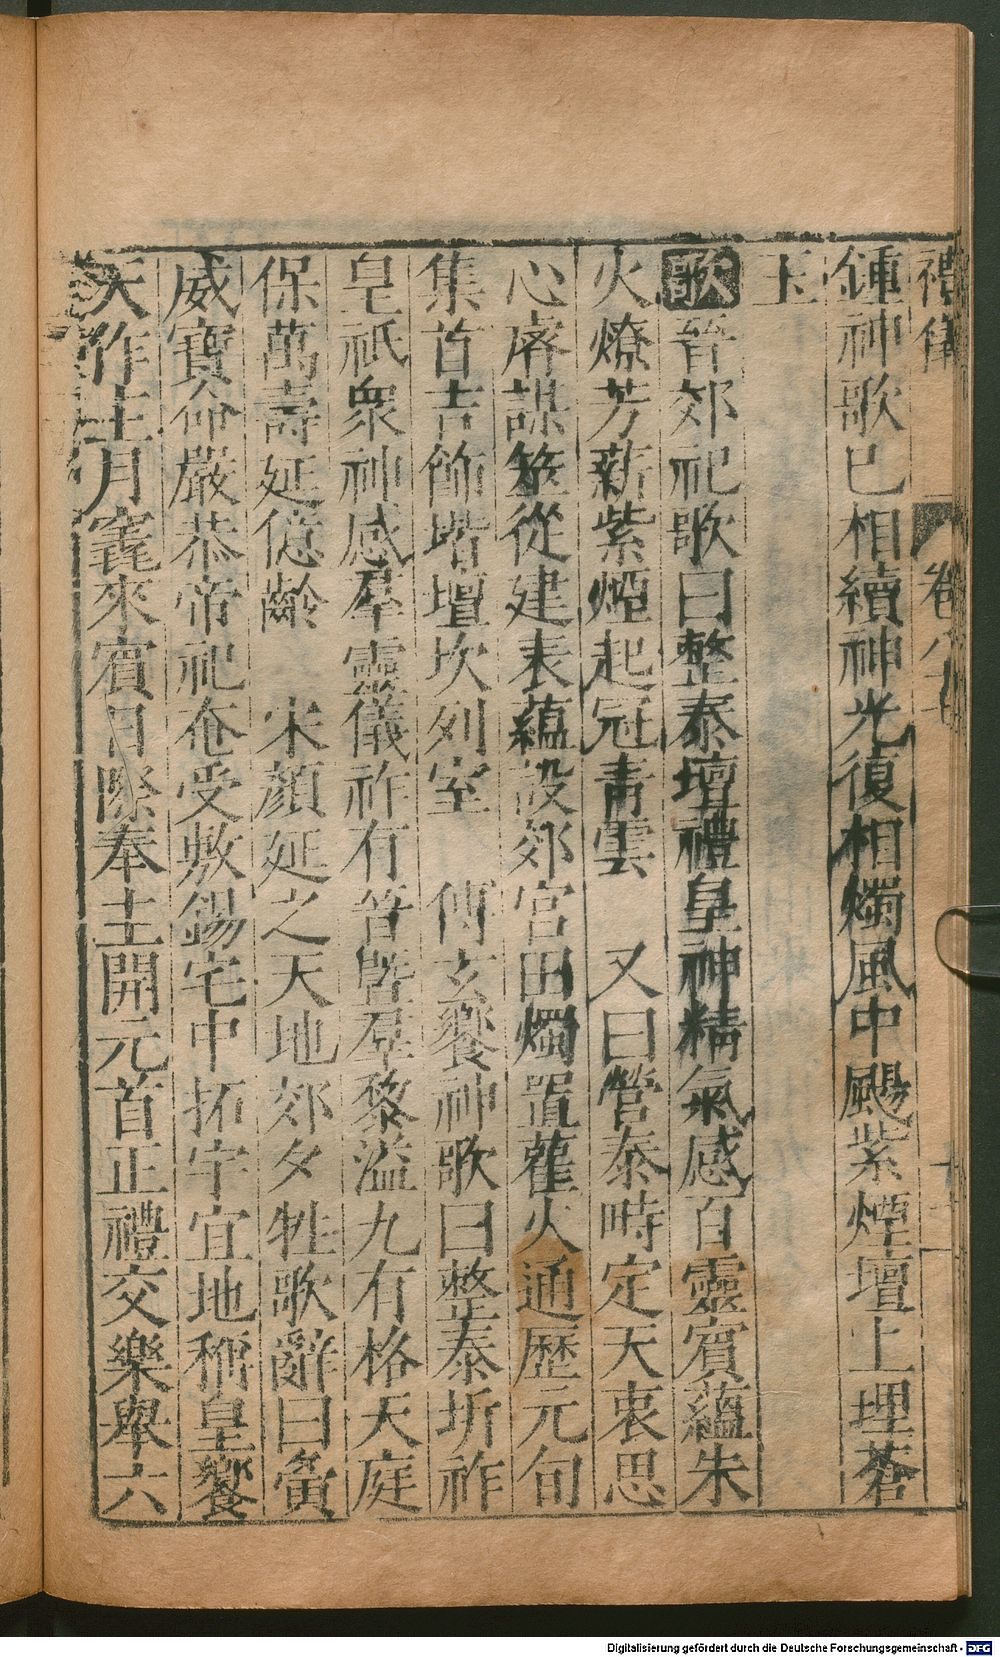 禮儀 卷八
鍾神歌已相續神光復相燭風中颺紫煙壇上埋蒼
玉
歌晉郊祀歌曰整泰壇禮皇神精氣感百靈賓蘊朱
火燎芳薪紫煙起冠青雲 又曰營泰畤定天衷思
心睿謀筮從建表蘊設郊宮田燭置雚火通歷元旬
集首吉飾墠壇坎列室 傅玄饗神歌曰整泰圻祚
皇祇衆神感羣靈儀祚有音暨羣黎溢九有格天庭
保萬壽延億齡 宋顏延之天地郊夕牲歌辭曰夤
威寶命嚴恭帝祀 受敷錫宅中拓宇宜地稱皇饗
天作主月竁來賓日際奉土開元首正禮交樂舉六
Digitalisierung gefördert durch die Deutsche Forschungsgemeinschaft - DFG